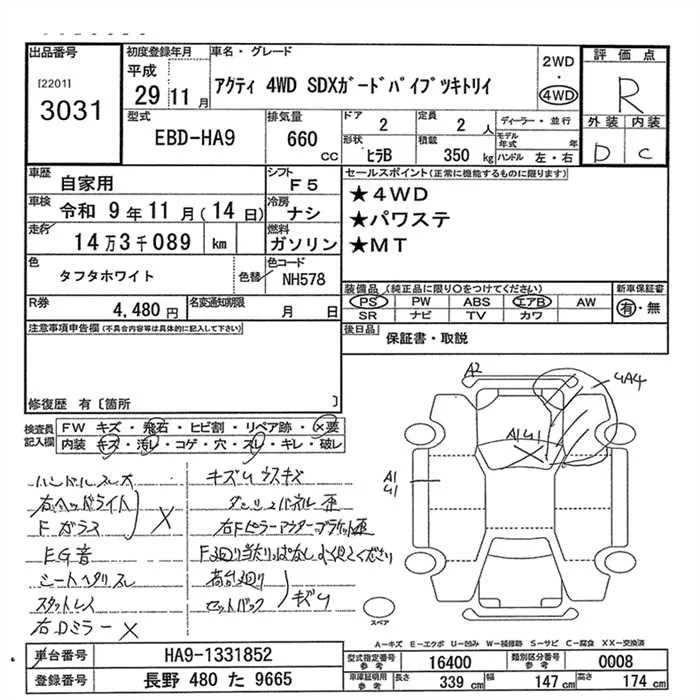 出品番号
[2201]
3031
初度登録年月
平成
29 11 月
車名・グレード
アクティ 4WD SDXガードパイプツキトリイ
2WD
・
4WD
評価点
R
外装 内装
D C
型式
EBD-HA9
排気量
660 cc
ドア
2
定員
2 人
形状
ヒラB
積載
350 kg
ディーラー・並行
モデル年式 年
ハンドル 左・右
車歴
自家用
シフト
F5
車検
令和 9年11月(14日)
冷房
ナシ
走行
14万3千089 km
燃料
ガソリン
色
タフタホワイト
色替
色コード
NH578
R券
4,480円
名変通知期限
月 日
セールスポイント(正常に機能するものに限ります)
★4WD
★パワステ
★MT
装備品(純正品に限り○をつけてください)
PS PW ABS エアB AW
SR ナビ TV カワ
新車保証書
有・無
後日品
保証書・取説
注意事項申告欄(不具合内容等は具体的に記入して下さい)
修復歴 有〔箇所 〕
検査員記入欄
FW キズ・飛石・ヒビ割・リペア跡・×要
内装 キズ・汚レ・コゲ・穴・スレ・キレ・破レ
ハンドルスレ大
右ヘッドライト
Fガラス
×
EG音
シートヘタリスレ
スタットレス
右Dミラー×
キズUウスキズ
ダッシュパネル歪
右Fピラーアウターブラケット歪
F廻り当たりっぱなし よく見てください
荷台廻り
セットバック
キズU
A2
4A4
A1U1
A1
U1
スペア
A-キズ E-エクボ U-凹み W-補修跡 S-サビ C-腐食 XX-交換済
車台番号
HA9-1331852
型式指定番号
参考
16400
類別区分番号
参考
0008
登録番号
長野 480 た 9665
車庫証明用
参考
長さ
339
幅
147 cm
高さ
174 cm